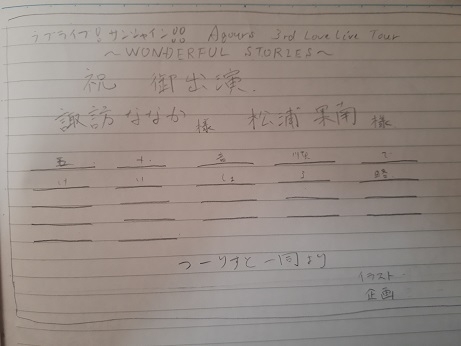 ラブライブ!サンシャイン!! Aqours 3rd LoveLive Tour
~WONDERFUL STORIES~
祝 御出演
諏訪ななか様 松浦果南様
つーりすと一同より
イラスト
企画